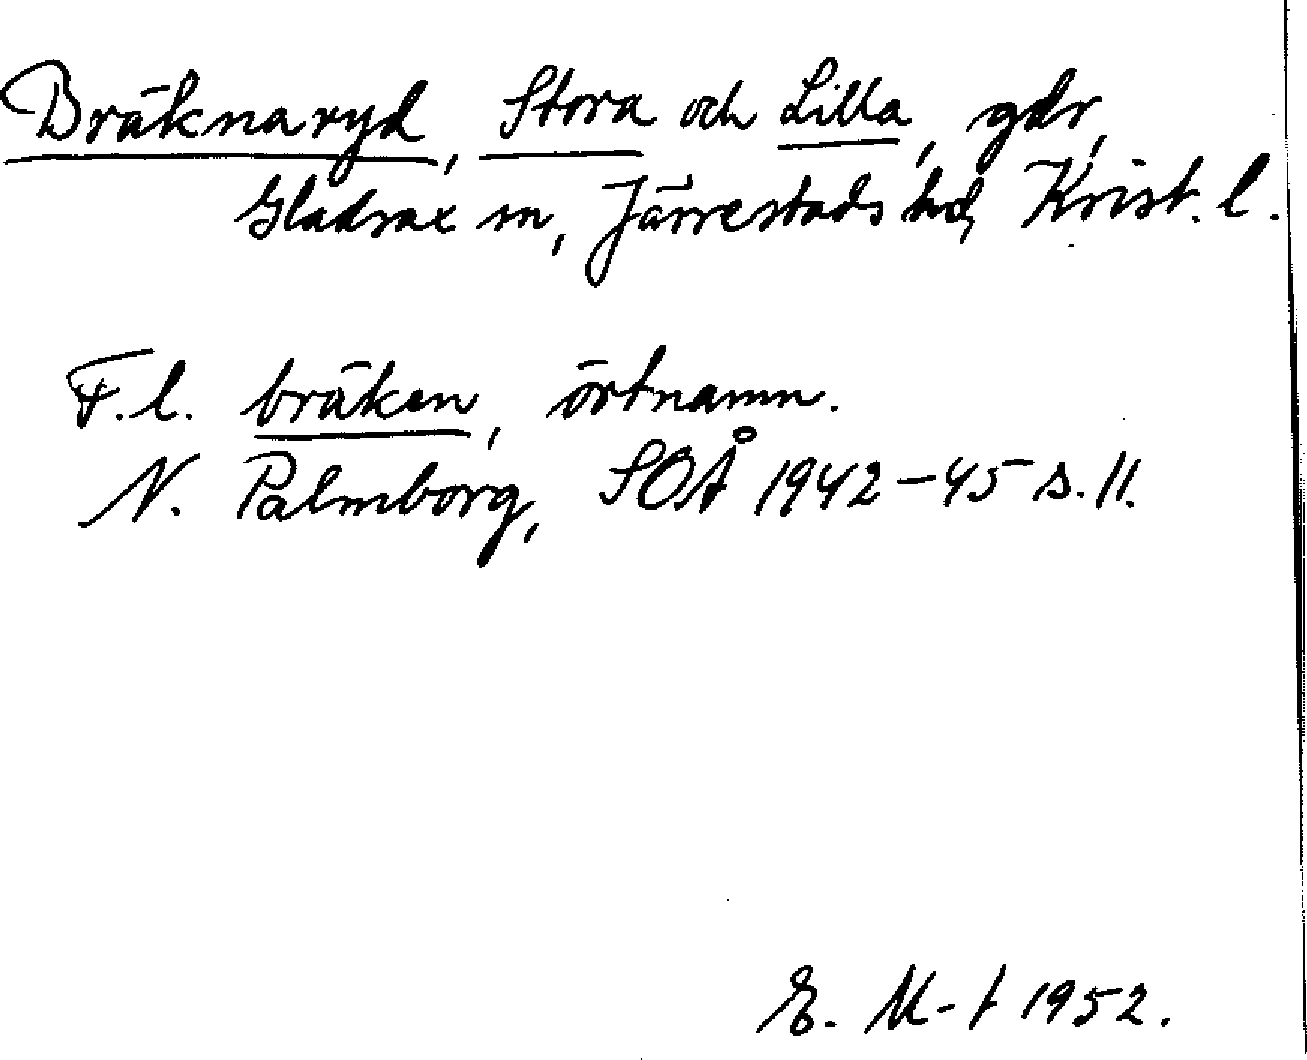 Bräknaryd, Stora och Lilla, gdr,
Gladsax sn, Järrestads hd, Krist. l.
F.l. bräken, örtnamn.
N. Palmborg, SOÅ 1942–45 s. 11.
E. M-t 1952.